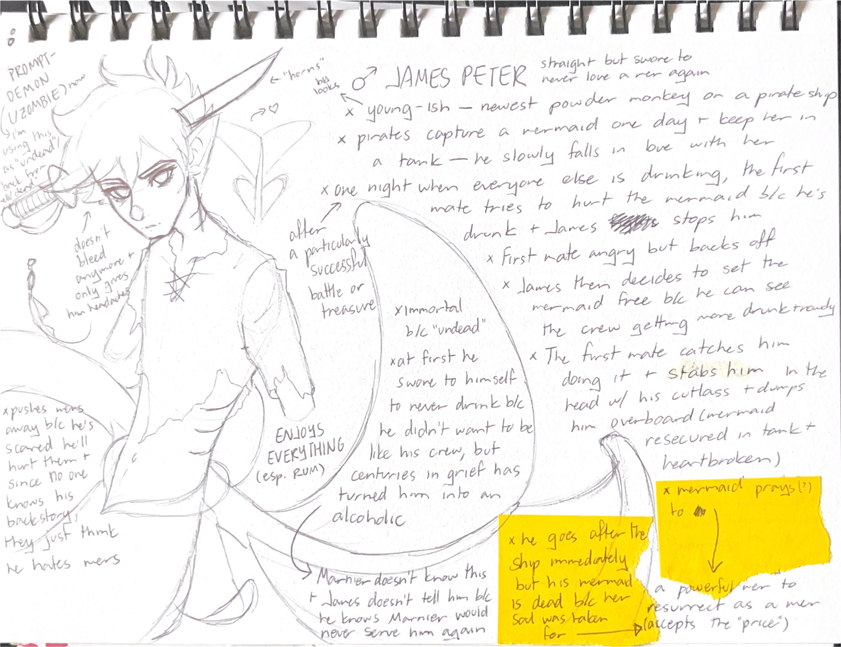 PROMPT-
DEMON
(/ZOMBIE) now
I'm
using this
as "undead"
← "horns"
his
looks
♂ JAMES PETER
straight but swore to
never love a mer again
x young-ish — newest powder monkey on a pirate ship
x pirates capture a mermaid one day + keep her in
a tank — he slowly falls in love with her
x one night when everyone else is drinking, the first
mate tries to hurt the mermaid b/c he's
drunk + James stops him
x First mate angry but backs off
x James then decides to set the
mermaid free b/c he can see
the crew getting more drunk + rowdy
x The first mate catches him
doing it + stabs him in the
head w/ his cutlass + dumps
him overboard (mermaid
resecured in tank +
heartbroken)
after
a particularly
successful
battle or
treasure
doesn't
bleed
anymore +
only gives
him headaches
x immortal
b/c "undead"
x at first he
swore to himself
to never drink b/c
he didn't want to be
like his crew, but
centuries in grief has
turned him into an
alcoholic
ENJOYS
EVERYTHING
(esp. RUM)
x pushes mers
away b/c he's
scared he'll
hurt them +
since no one
knows his
backstory,
they just think
he hates mers
Marnier doesn't know this
+ James doesn't tell him b/c
he knows Marnier would
never serve him again
x he goes after the
ship immediately
but his mermaid
is dead b/c her
soul was taken
for →
x mermaid prays(?)
to
a powerful mer to
resurrect as a mer
(accepts the "price")